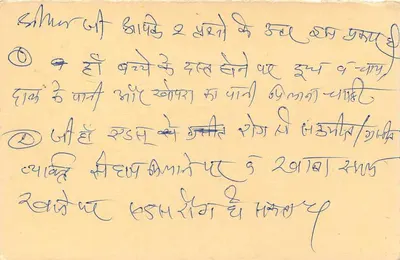 श्रीमान जी आपके 2 प्रश्नो के उत्तर इस प्रकार है
① हाँ बच्चे के दस्त होने पर दूध व चाय,
दाल के पानी और खोपरा का पानी पिलाना चाहिए
② जी हाँ एडस रोग से
व्यक्ति से हाथ मिलाने पर व खाना साथ
खाने पर एडस रोग हो सकता है